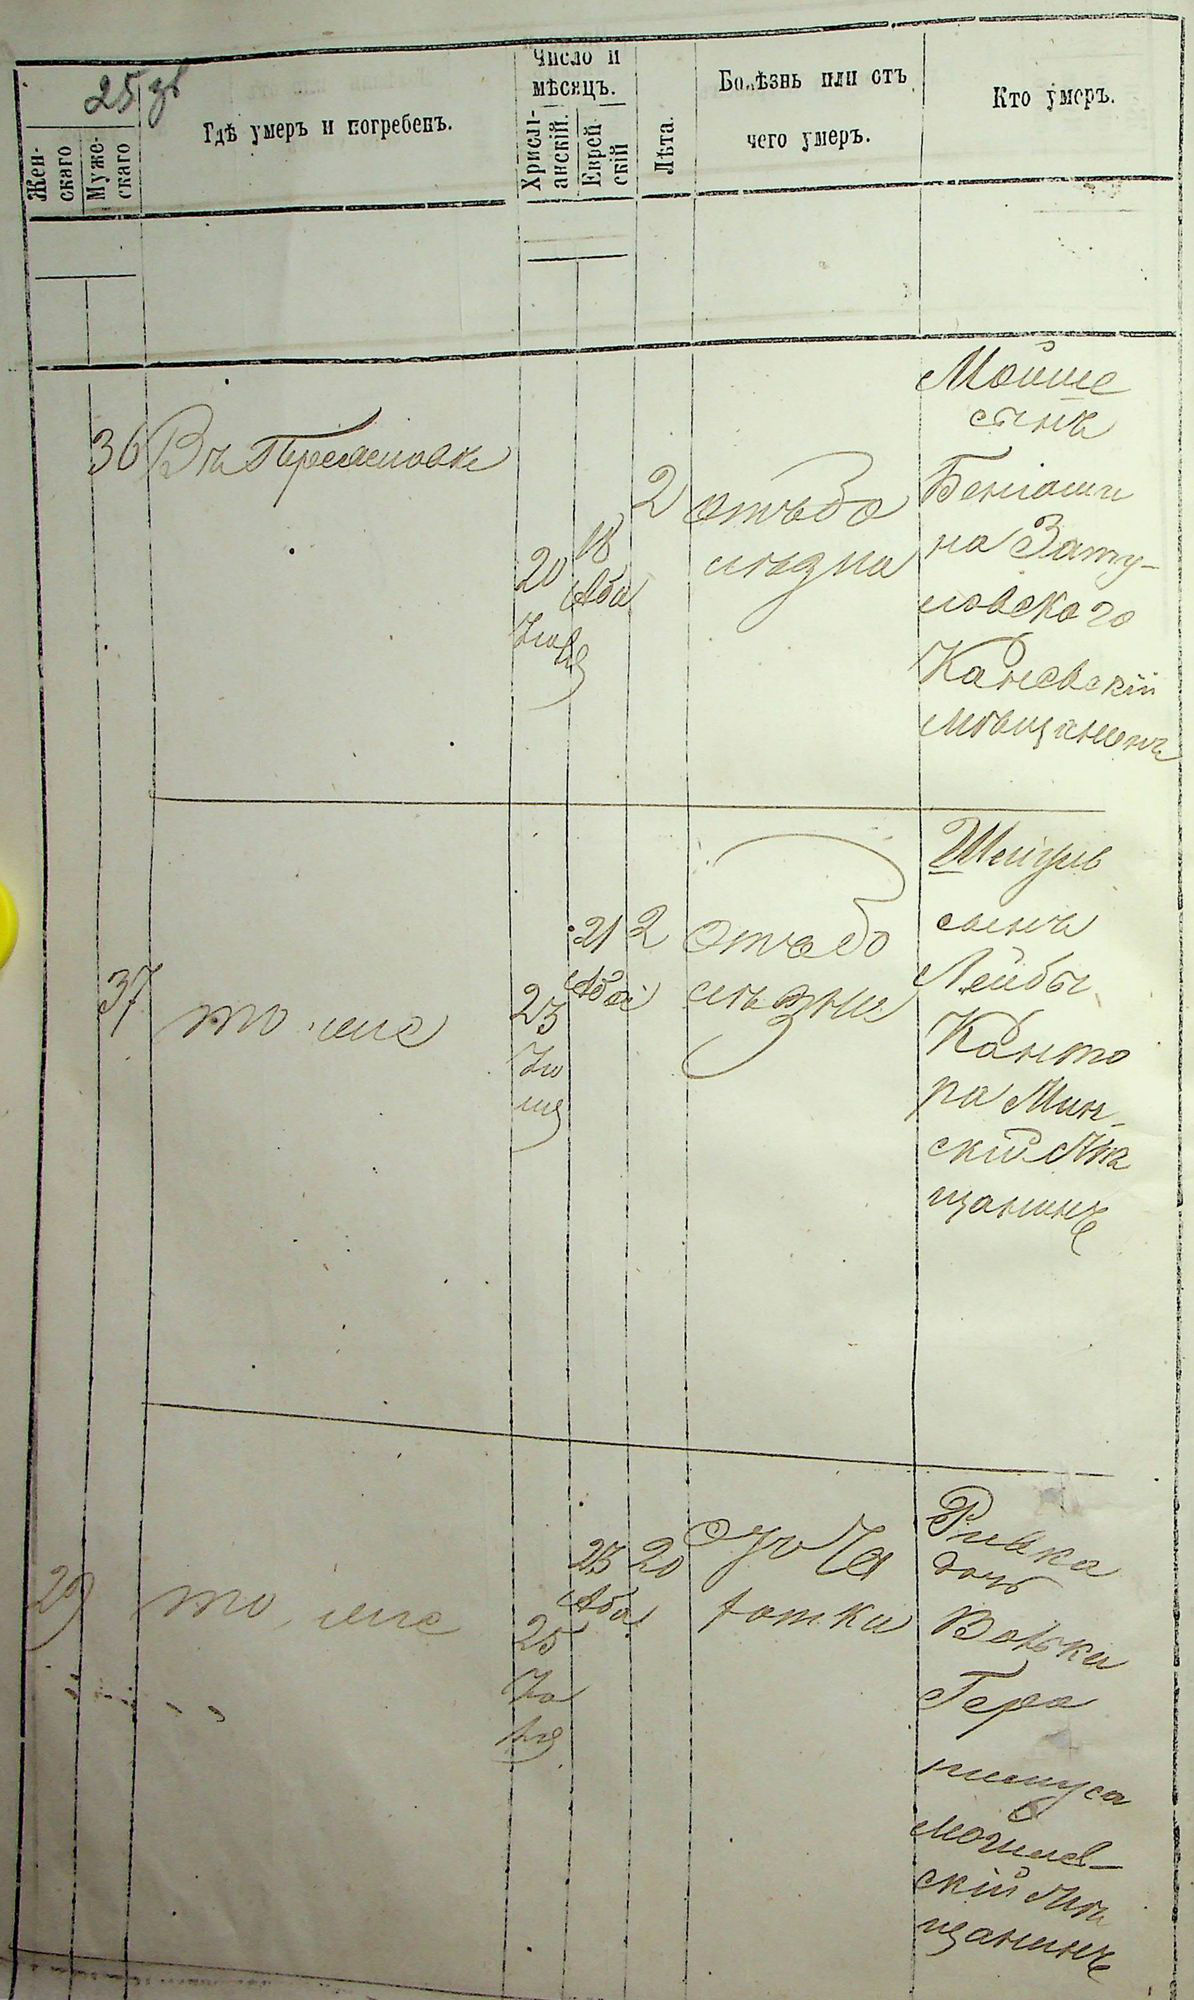 25 зв
Жен-
скаго
Муже-
скаго
Гдѣ умеръ и погребенъ.
Число и
мѣсяцъ.
Христі-
анскій.
Еврей
скій
Лѣта.
Болѣзнь или отъ
чего умеръ.
Кто умеръ.
36
Въ
20
Іюля
18
Ава
2
отъ бо
лѣзни
Мойше
сынъ
Беніоми
на Зату-
ловскаго
Каневскій
мѣщанинъ
37
то же
23
Ію
ля
21
Ава
2
отъ бо
лѣзни
сынъ
Лейбы
Канто
ра Мин-
скій мѣ
щанинъ
29
то же
25
Ію
ля
23
Ава
20
отъ ча
хотки
Ривка
дочь
Волька
Могилев-
скій мѣ
щанинъ